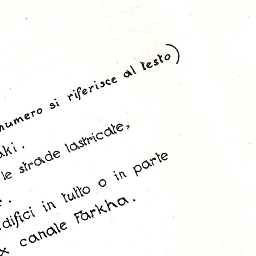 numero si riferisce al testo)
aki.
le strade lastricate,
.
difici in tutto o in parte
x canale Farkha.